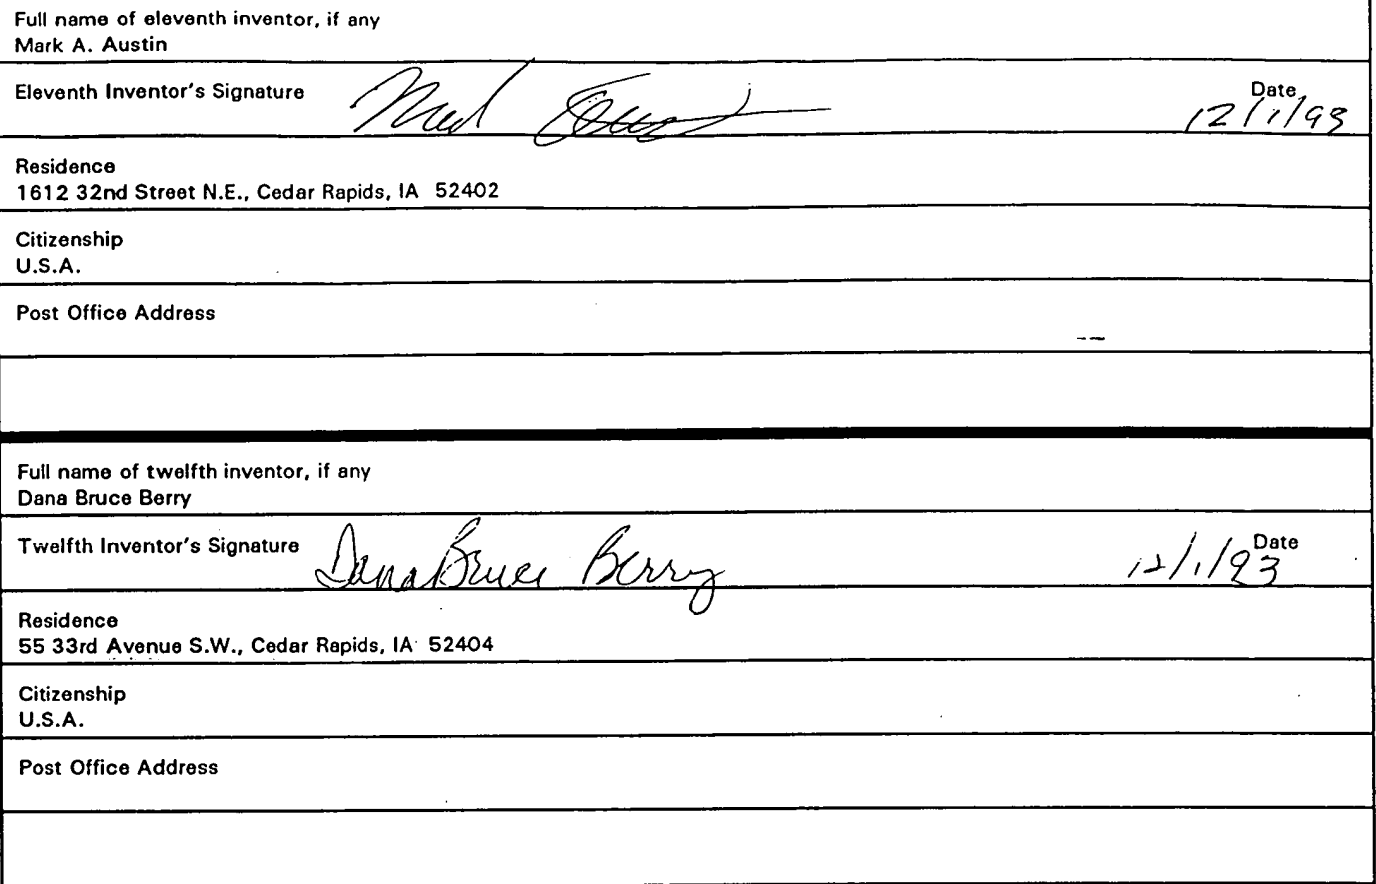 Full name of eleventh inventor, if any
Mark A. Austin
Eleventh Inventor's Signature
Date
12/1/93
Residence
1612 32nd Street N.E., Cedar Rapids, IA 52402
Citizenship
U.S.A.
Post Office Address
Full name of twelfth inventor, if any
Dana Bruce Berry
Twelfth Inventor's Signature Dana Bruce Berry
Date
12/1/93
Residence
55 33rd Avenue S.W., Cedar Rapids, IA 52404
Citizenship
U.S.A.
Post Office Address